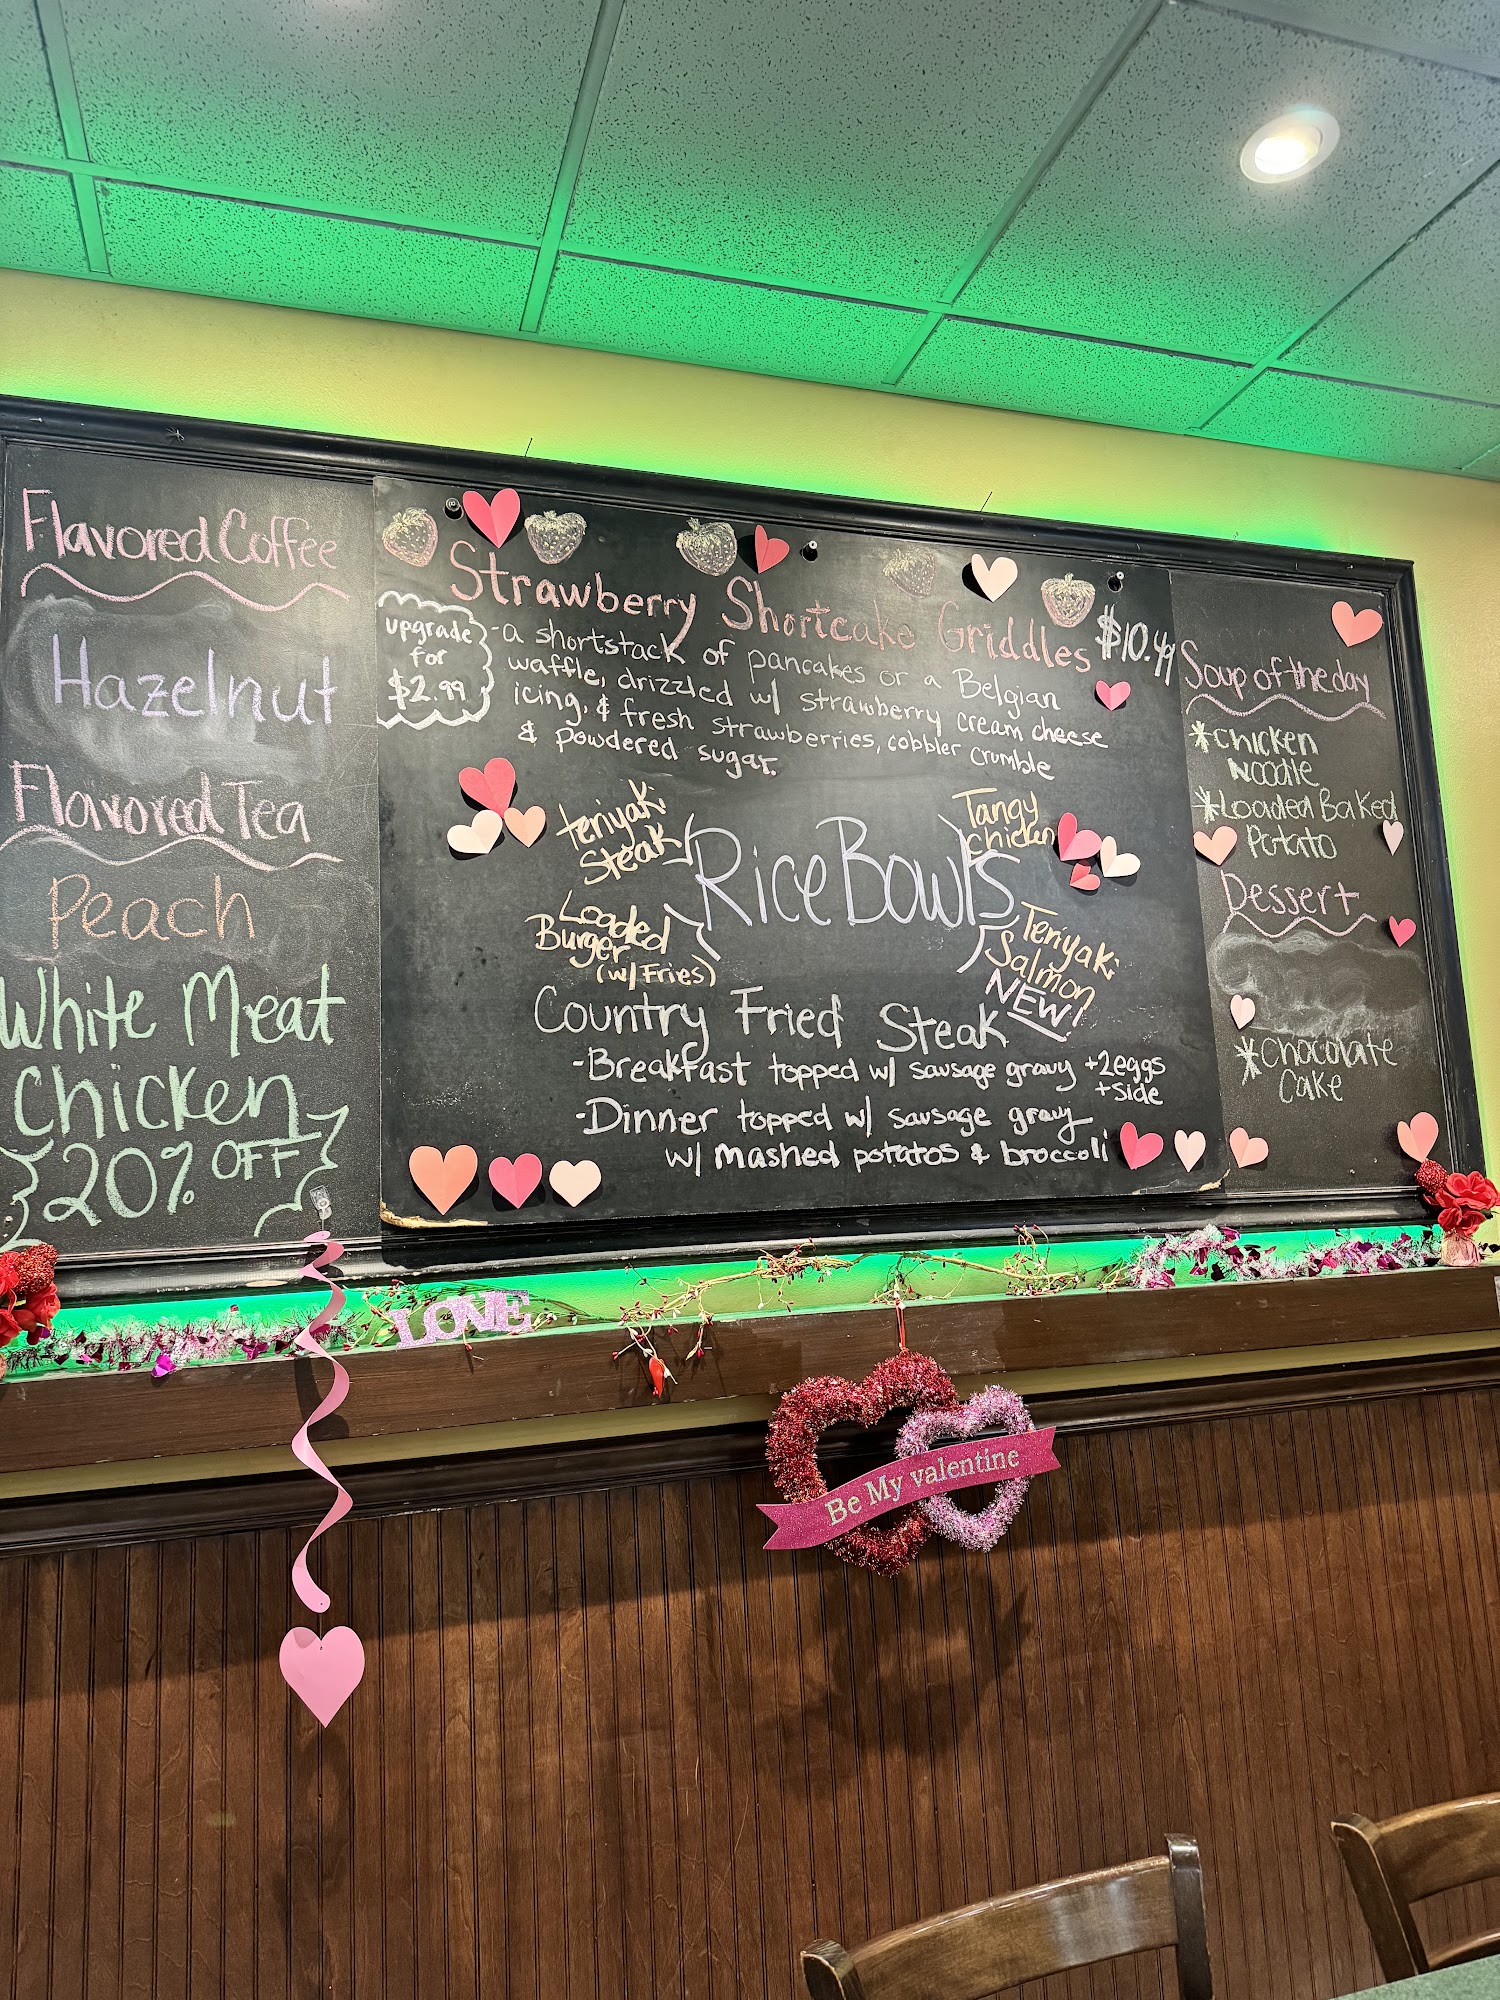 Flavored Coffee
Hazelnut
Flavored Tea
Peach
White Meat
Chicken
20% OFF
Strawberry Shortcake Griddles $10.49
upgrade
for
$2.99
-a shortstack of pancakes or a Belgian
waffle, drizzled w/ strawberry cream cheese
icing, & fresh strawberries, cobbler crumble
& powdered sugar.
Teriyaki
Steak
Tangy
Chicken
Rice Bowls
Loaded
Burger
(w/Fries)
Teriyaki
Salmon
NEW!
Country Fried Steak
-Breakfast topped w/ sausage gravy +2eggs
+side
-Dinner topped w/ sausage gravy
w/ mashed potatos & broccoli
Soup of the day
*Chicken
Noodle
*Loaded Baked
Potato
Dessert
*Chocolate
Cake
LOVE
Be My valentine